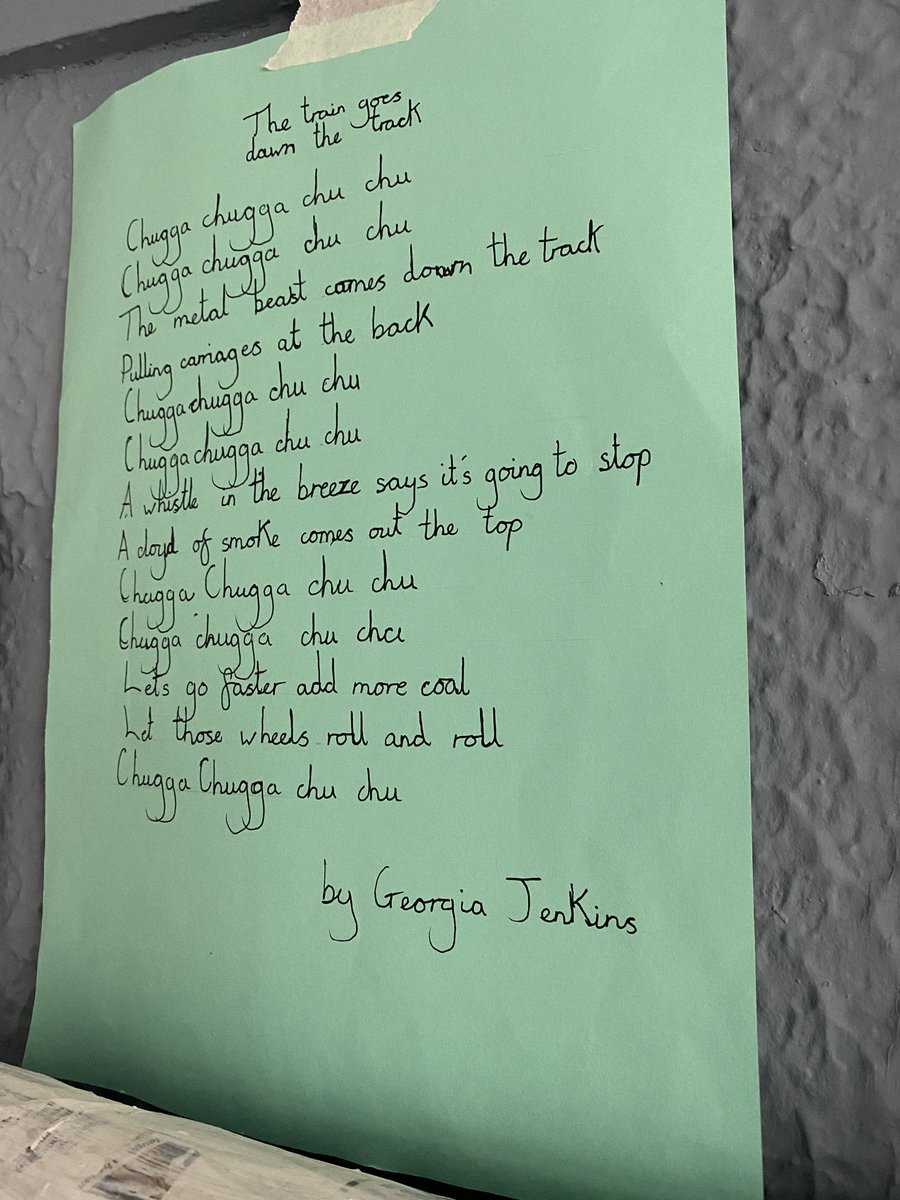 The train goes
down the track
Chugga chugga chu chu
Chugga chugga chu chu
The metal beast comes down the track
Pulling carriages at the back
Chugga chugga chu chu
Chugga chugga chu chu
A whistle in the breeze says it's going to stop
A cloyd of smoke comes out the top
Chugga Chugga chu chu
Chugga chugga chu chu
Lets go faster add more coal
Let those wheels roll and roll
Chugga Chugga chu chu
by Georgia Jenkins